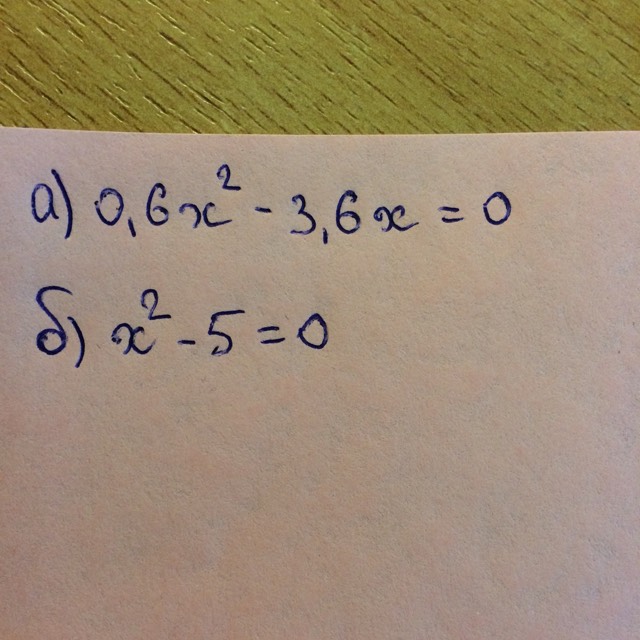 а) 0,6x² - 3,6x = 0
б) x² - 5 = 0